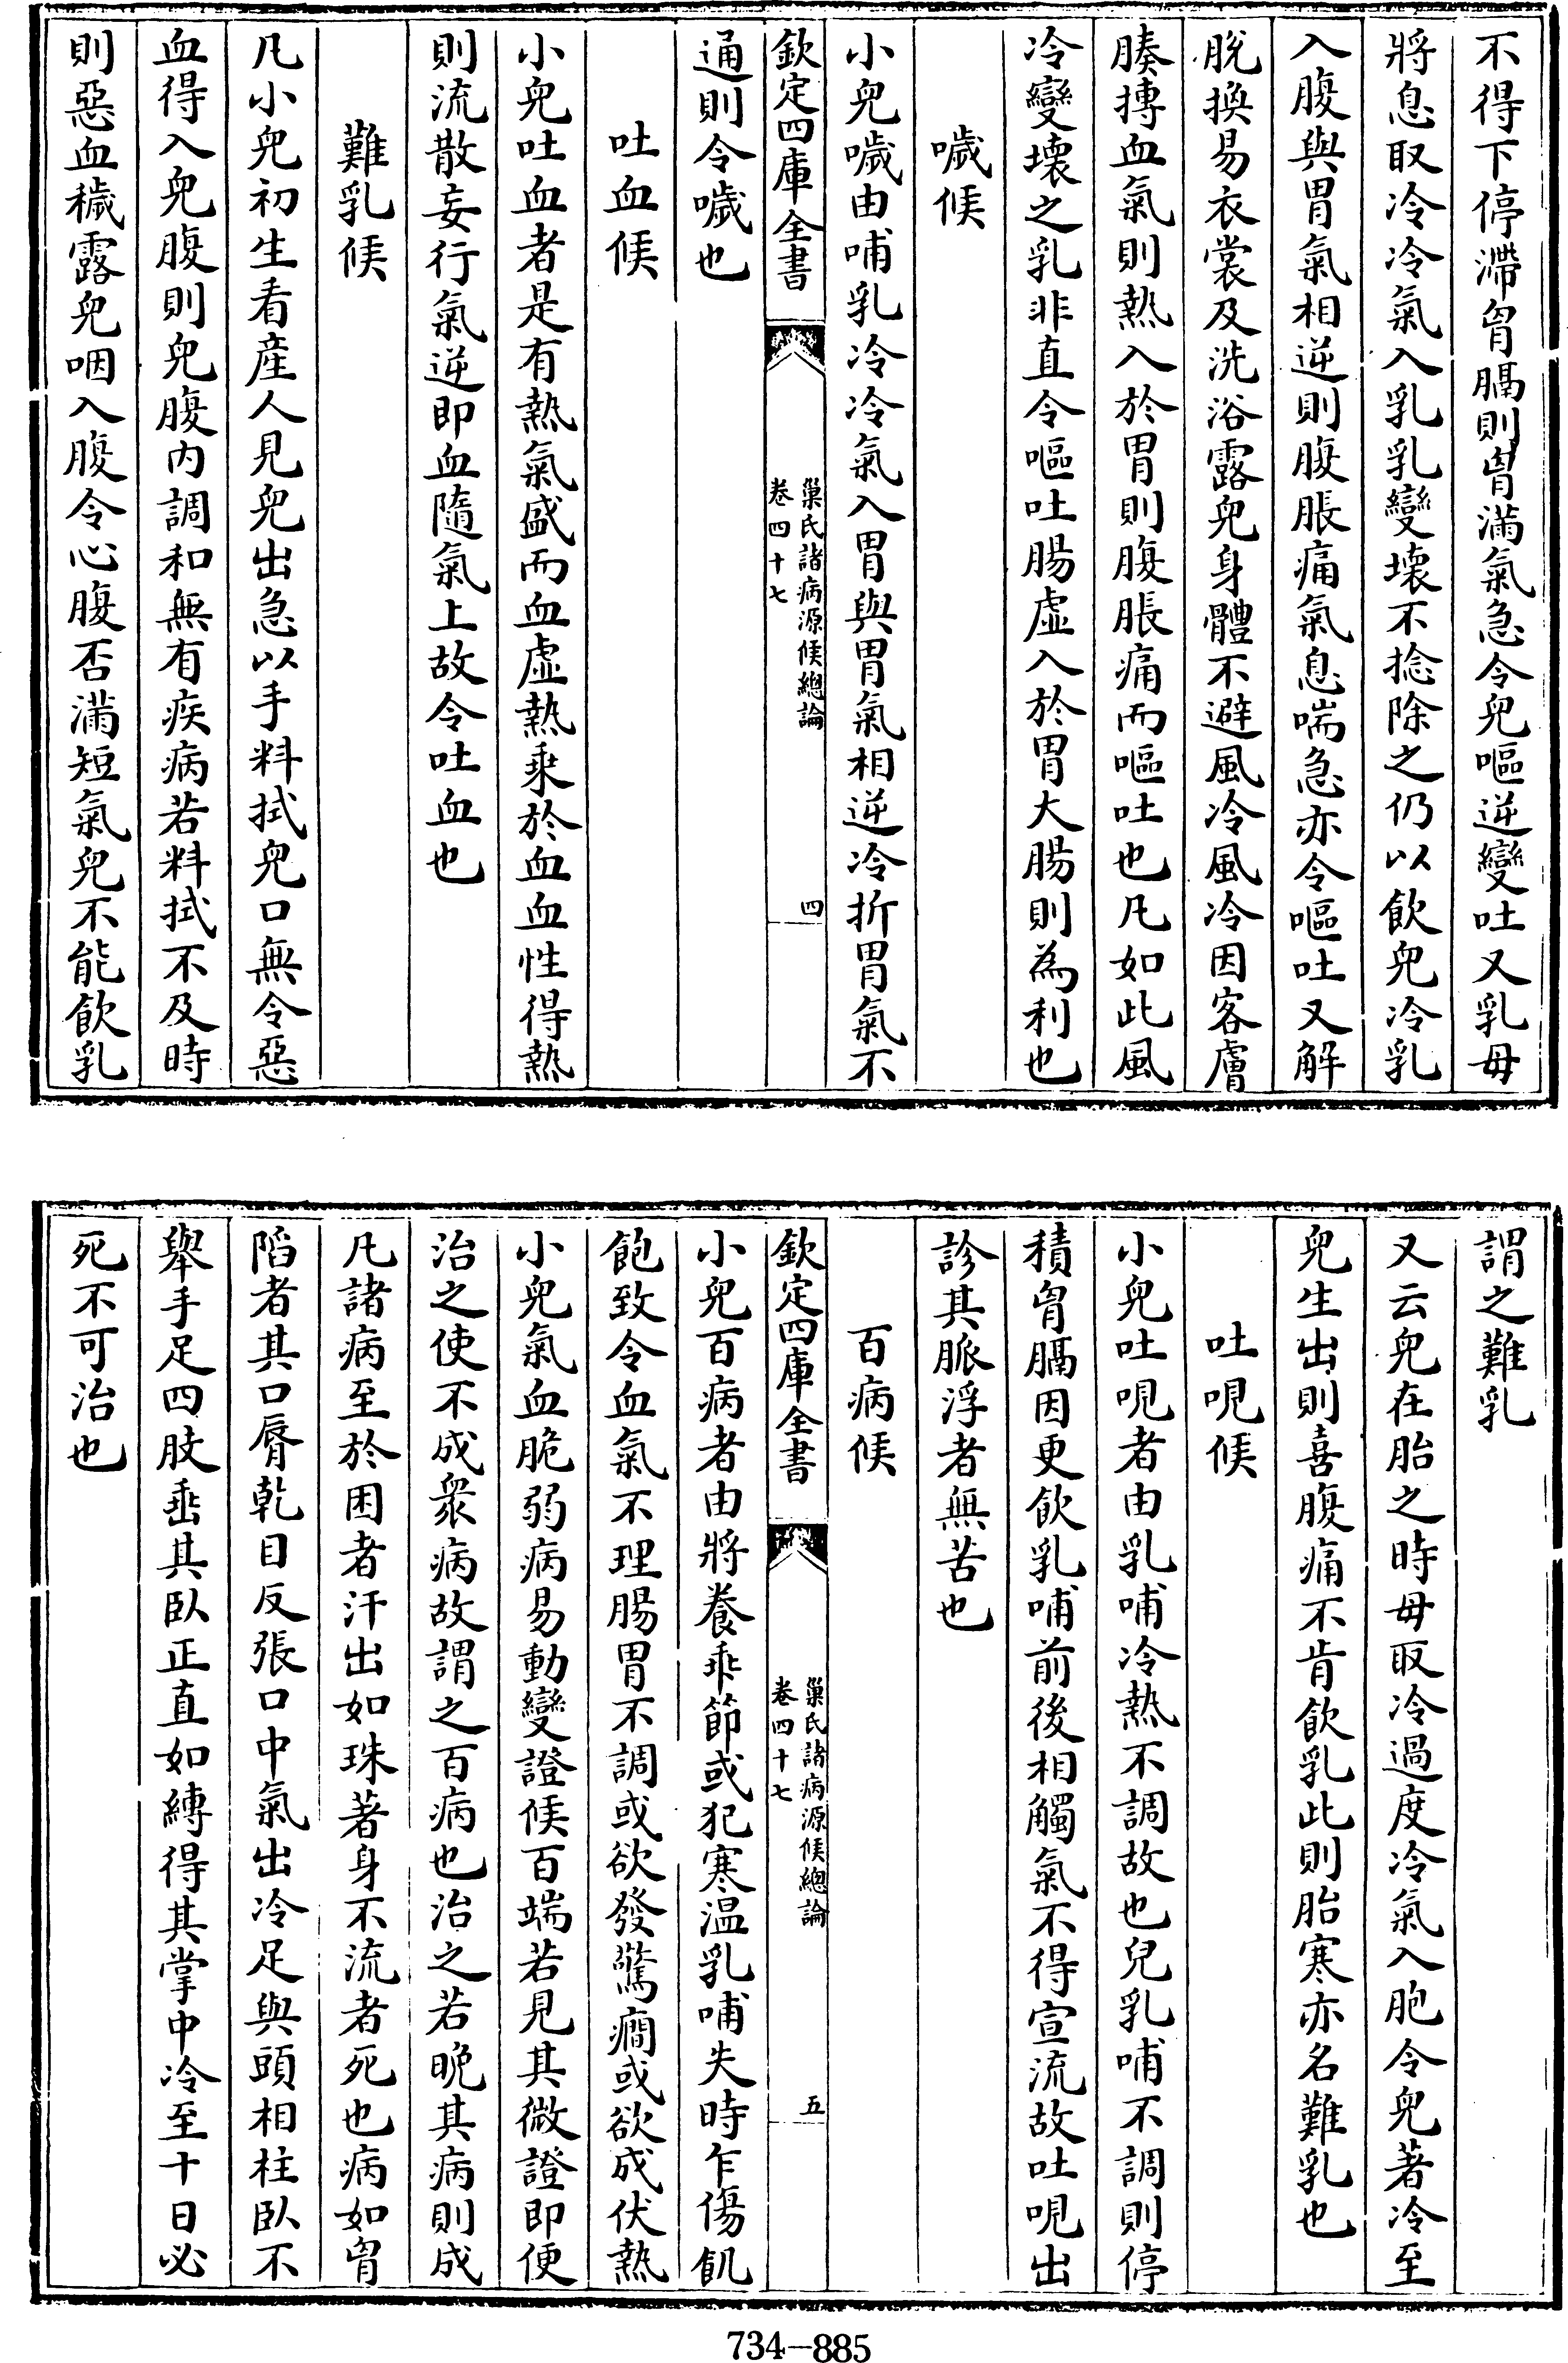 不得下停滯胷膈則胷滿氣急令兒嘔逆變吐又乳母
將息取冷冷氣入乳乳變壞不捻除之仍以飲兒冷乳
入腹與胃氣相逆則腹脹痛氣息喘急亦令嘔吐又解
脫換易衣裳及洗浴露兒身體不避風冷風冷因客膚
腠搏血氣則熱入於胃則腹脹痛而嘔吐也凡如此風
冷變壞之乳非直令嘔吐腸虛入於胃大腸則為利也
噦候
小兒噦由哺乳冷冷氣入胃與胃氣相逆冷折胃氣不
欽定四庫全書
巢氏諸病源候總論
卷四十七
四
通則令噦也
吐血候
小兒吐血者是有熱氣盛而血虛熱乘於血血性得熱
則流散妄行氣逆即血隨氣上故令吐血也
難乳候
凡小兒初生看產人見兒出急以手料拭兒口無令惡
血得入兒腹則兒腹内調和無有疾病若料拭不及時
則惡血穢露兒咽入腹令心腹否滿短氣兒不能飲乳
謂之難乳
又云兒在胎之時母取冷過度冷氣入胞令兒著冷至
兒生出則喜腹痛不肯飲乳此則胎寒亦名難乳也
吐哯候
小兒吐哯者由乳哺冷熱不調故也兒乳哺不調則停
積胷膈因更飲乳哺前後相觸氣不得宣流故吐哯出
診其脈浮者無苦也
百病候
欽定四庫全書
巢氏諸病源候總論
卷四十七
五
小兒百病者由將養乖節或犯寒温乳哺失時乍傷飢
飽致令血氣不理腸胃不調或欲發驚癇或欲成伏熱
小兒氣血脆弱病易動變證候百端若見其微證即便
治之使不成衆病故謂之百病也治之若晚其病則成
凡諸病至於困者汗出如珠著身不流者死也病如胷
陷者其口唇乾目反張口中氣出冷足與頭相柱臥不
舉手足四肢垂其臥正直如縛得其掌中冷至十日必
死不可治也
734-885